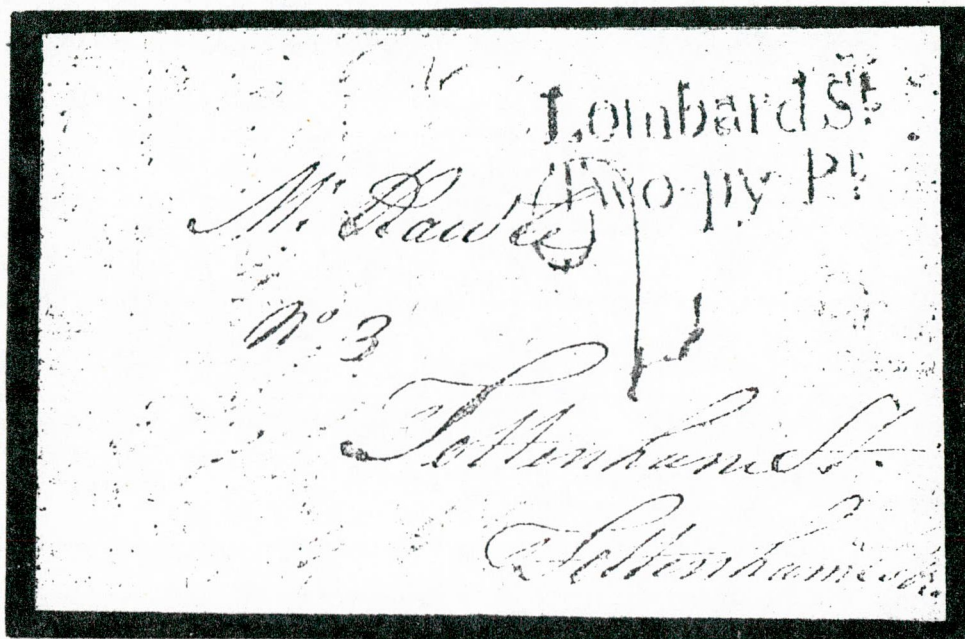 Lombard St
Two-py Pt
Mr
No 3
Tottenham St.
Tottenham